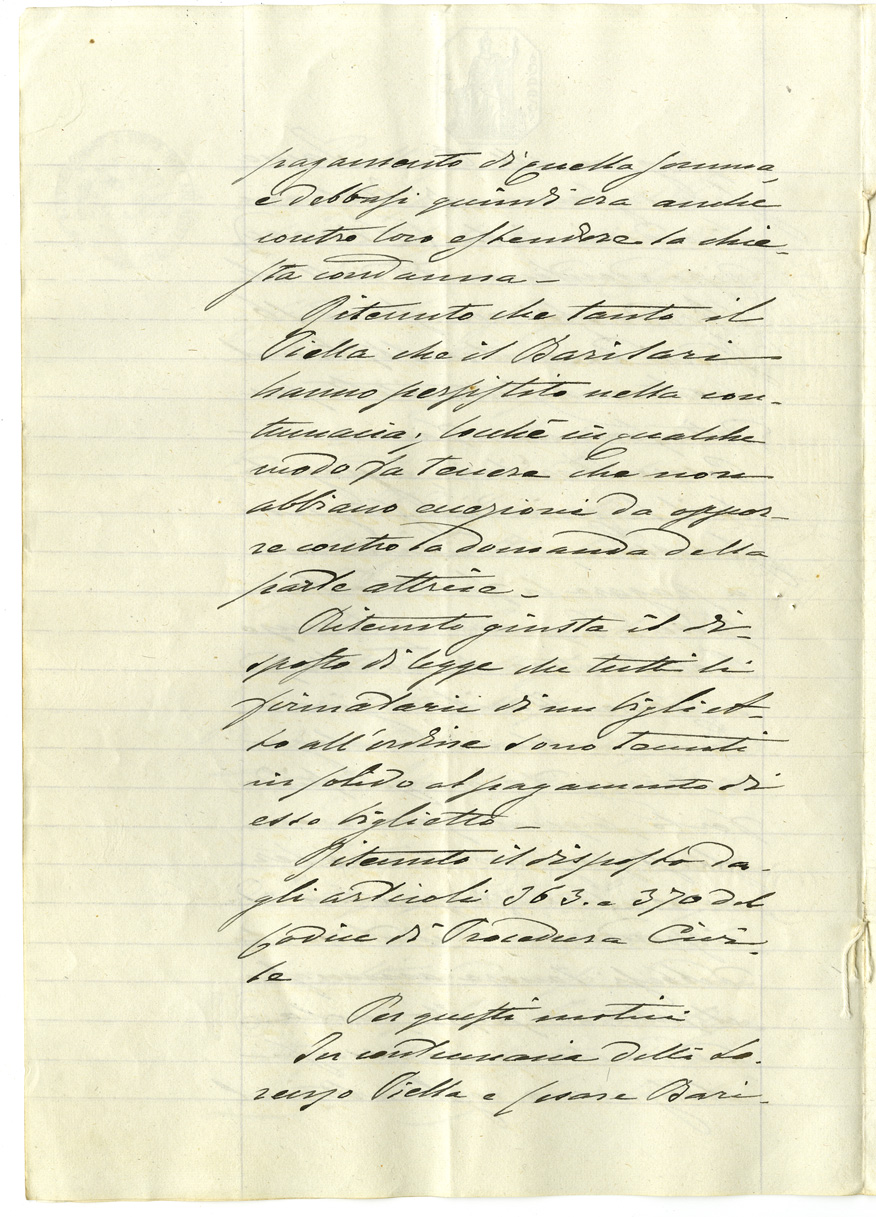 pagamento di quella somma,
e debbasi quindi ora anche
contro loro estendere la chie-
sta condanna -
Ritenuto che tanto il
Piella che il Barilari
hanno persistito nella con-
tumacia; locché in qualche
modo fa tenere che non
abbiano eccezioni da oppor-
re contro la domanda della
parte attrice -
Ritenuto giusta il di-
sposto di legge che tutti li
firmatarii di un bigliet-
to all'ordine sono tenuti
in solido al pagamento di
esso biglietto -
Ritenuto il disposto da-
gli articoli 363. e 370 del
Codice di Procedura Civi-
le
Per questi motivi
In contumacia delli Lo-
renzo Piella e Cesare Bari-